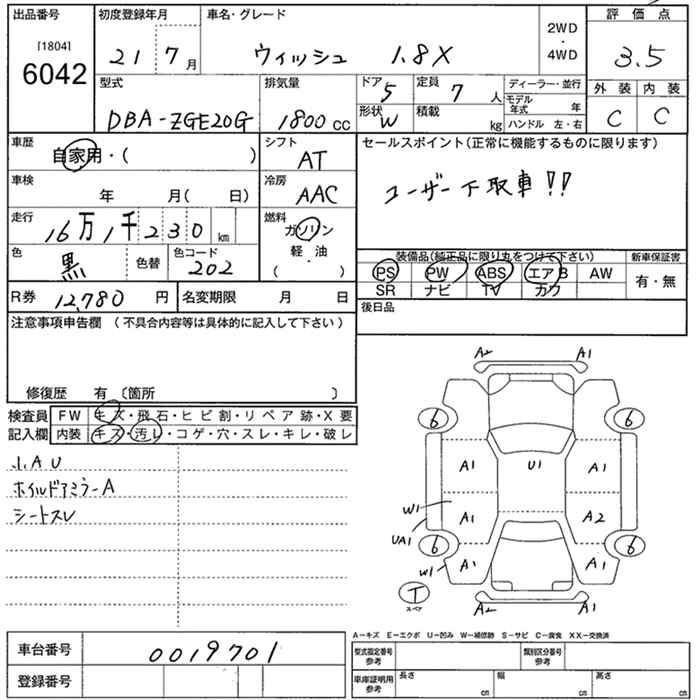 出品番号 初度登録年月 車名・グレード 2WD・4WD 評価点
[1804] 6042 21 7月 ウィッシュ 1.8X 3.5
型式 排気量 ドア 5 定員 7人 ディーラー・並行 外装 内装
DBA-ZGE20G 1800cc 形状 W 積載 kg モデル年式 年 C C
ハンドル 左・右
車歴 自家用・( ) シフト AT セールスポイント(正常に機能するものに限ります)
車検 年 月( 日) 冷房 AAC ユーザー下取車!!
走行 16万1千230km 燃料 ガソリン 軽・油 ( )
色 黒 色替 色コード 202
装備品(純正品に限り丸をつけて下さい) 新車保証書
PS PW ABS エアB AW 有・無
SR ナビ TV カワ
R券 12,780円 名変期限 月 日 後日品
注意事項申告欄 (不具合内容等は具体的に記入して下さい)
修復歴 有 〔箇所 〕
検査員 FW キズ・飛石・ヒビ割・リペア跡・X要
記入欄 内装 キズ・汚レ・コゲ・穴・スレ・キレ・破レ
小AU
ホイルドアミラーA
シートスレ
A2 A1
6 6
A1 U1 A1
W1 A1 A2
UA1
6 6
W1 A1 A1
T スペア
A2 A1
A−キズ E−エクボ U−凹み W−補修跡 S−サビ C−腐食 XX−交換済
車台番号 0019701 型式指定番号 参考 類別区分番号 参考
登録番号 車庫証明用 参考 長さ cm 幅 cm 高さ cm